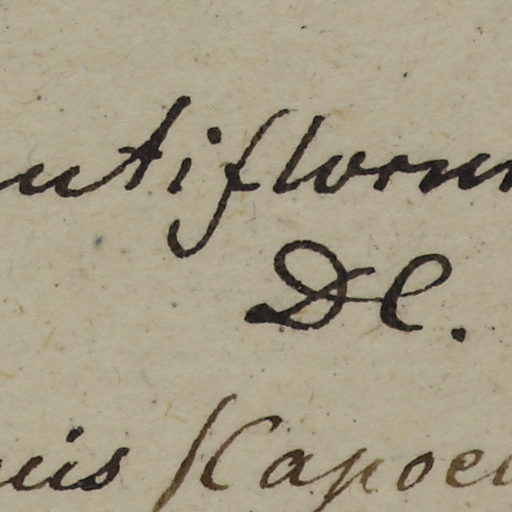 utiflorum
Dl.
uis Kapoe